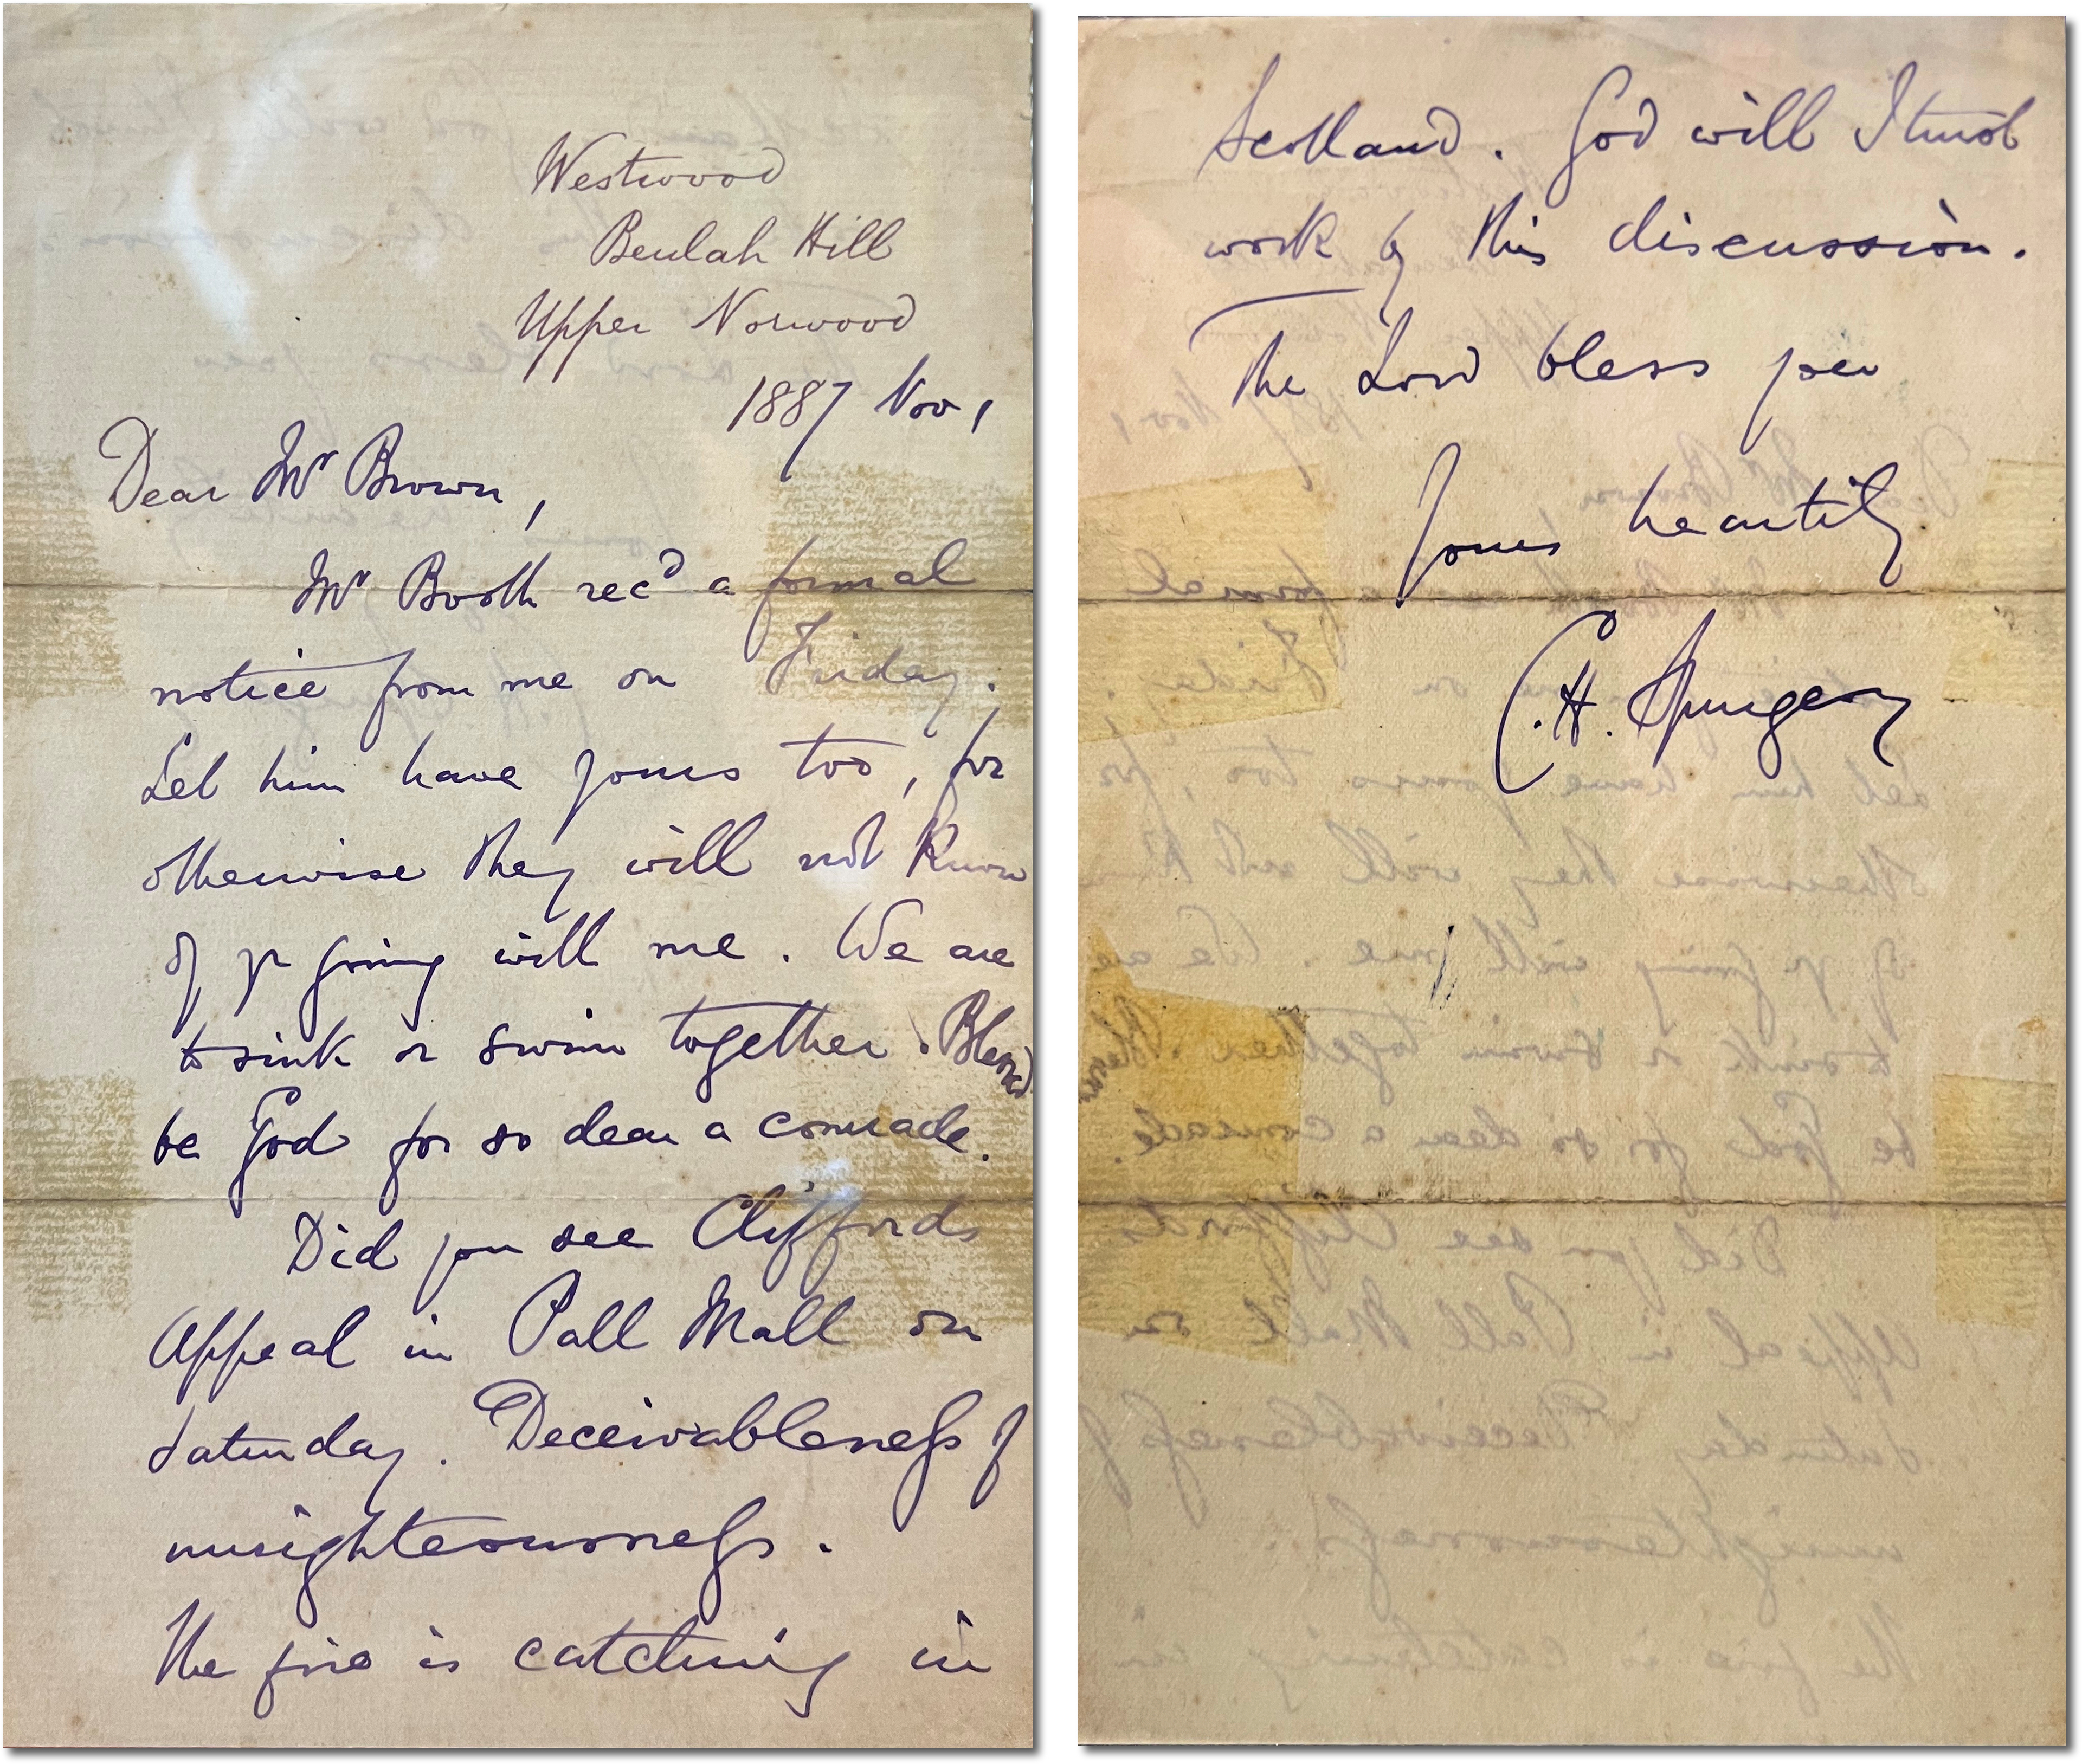 Westwood
Beulah Hill
Upper Norwood
1887 Nov 1
Dear Mr Brown,
Mr Booth recd a formal
notice from me on Friday.
Let him have yours too, for
otherwise they will not know
of yr going with me. We are
to sink or swim together. Blessed
be God for so dear a comrade.
Did you see Cliffords
Appeal in Pall Mall on
Saturday. Deceivableness of
unrighteousness.
The fire is catching in
Scotland. God will I trust
work by this discussion.
The Lord bless you
Yours heartily
C. H. Spurgeon